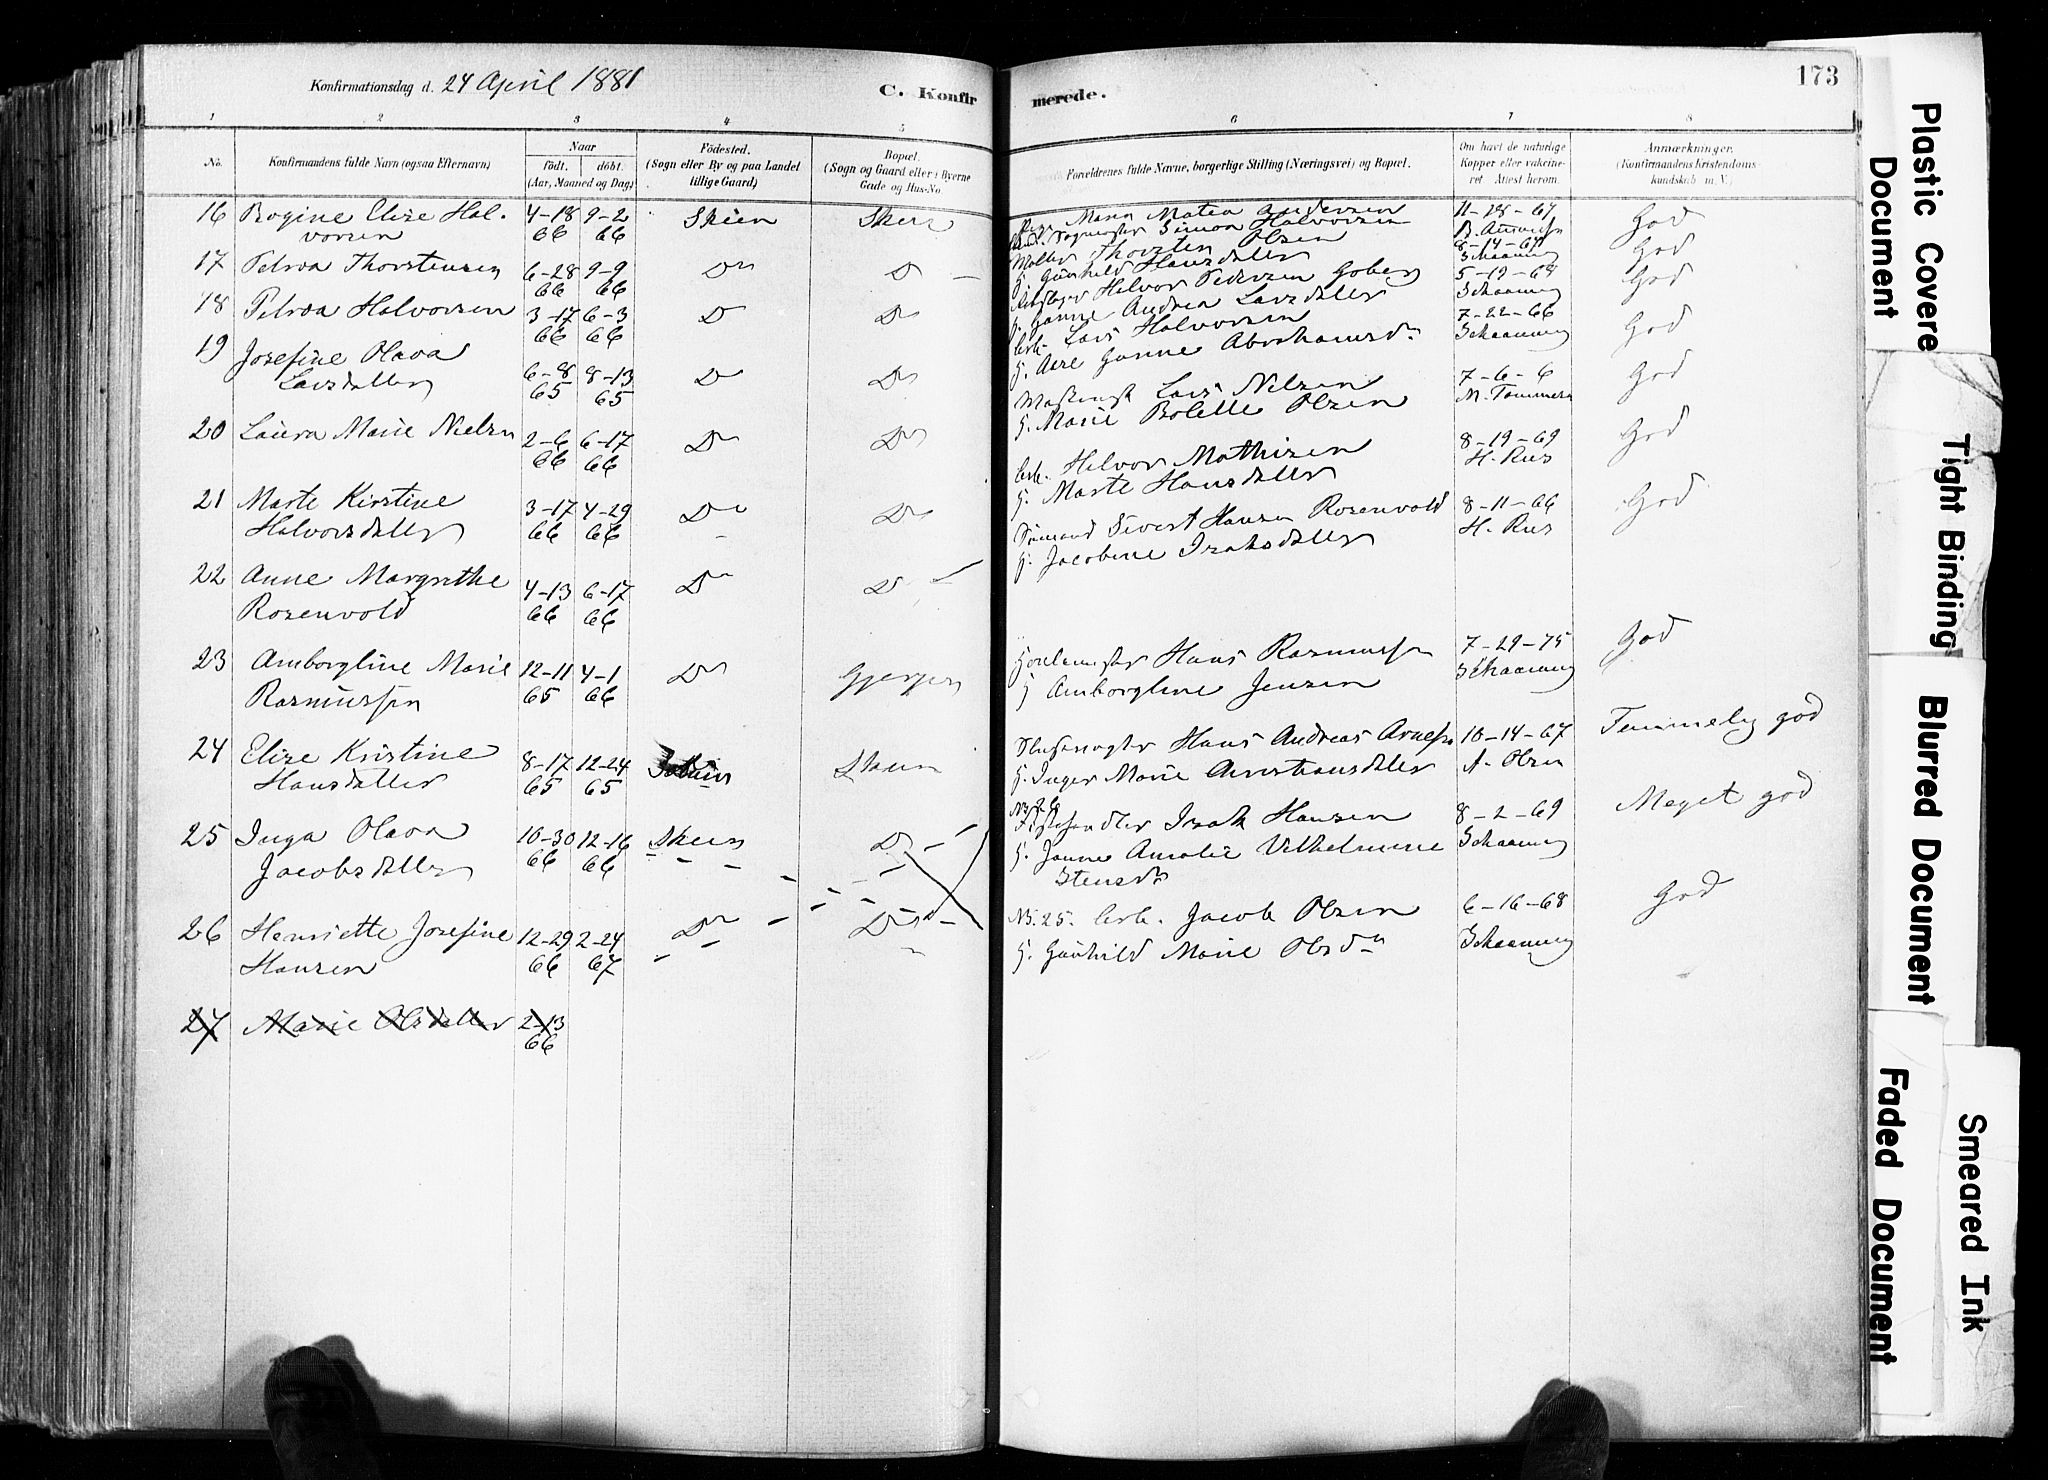 Konfirmationsdag d. 24 April 1881
C. Konfirmerede.
173
1 2 3 4 5 6 7 8
No.
Konfirmandens fulde Navn (ogsaa Efternavn)
Naar
födt. döbt.
(Aar, Maaned og Dag)
Födested.
(Sogn eller By og paa Landet
tillige Gaard)
Bopæl.
(Sogn og Gaard eller i Byerne
Gade og Hus-No.
Forældrenes fulde Navne, borgerlige Stilling (Næringsvei) og Bopæl.
Om havt de naturlige
Kopper eller vakcine-
ret. Attest herom.
Anmærkninger.
(Konfirmandens Kristendoms-
kundskab m. V.)
16 Rogine Elise Hal- 4-18 9-2 Skien Skien
vorsen 66 66
Maria Matea Andersen 11-28-67 God
Simon Halvorsen
17 Petrea Thorstensen 6-28 9-9 Do D
66 66
Thorsten Olsen 8-14-67 God
G. Gunhild Hansdatter Schaaning
18 Petrea Halvorsen 3-17 6-3 D D
66 66
Halvor Pedersen Goberg 5-19-68 God
G. Janne Andrea Larsdatter Schaaning
19 Josefine Olava
Larsdatter 6-8 8-13 D D
65 65
Arb. Lars Halvorsen 7-22-66 God
G. Aase Gunne Abrahamsdr Schaaning
20 Laura Marie Nielsen 2-6 6-17 D D
66 66
Lars Nilsen 7-6-6 God
G. Marie Bolette Olsen
21 Marte Kirstine 3-17 4-29 Do D
Halvorsdatter 66 66
Arb. Halvor Mathisen 8-19-69 God
G. Marte Hansdatter H. Rus
22 Anne Margrethe 4-13 6-17 D D
Rosenvold 66 66
Sømand Sivert Hansen Rosenvold 8-11-66 God
G. Jacobine Isaksdatter H. Rus
23 Amborgline Marie 12-11 4-1 D Gjerpen
Rasmussen 65 66
Hans Rasmussen 7-29-75 God
G Amborgline Jensen Schaaning
24 Elise Kristine 8-17 12-24 Skien
Hansdatter 65 65
Hans Andreas Arnesen 10-14-67 Temmelig god
G. Inger Marie A. Olsen
25 Inga Olava 10-30 12-16 Skien D
Jacobsdatter 66 66
No 26
Fiskehandler Isak Hansen 8-2-69 Meget god
G. Janne Amalie Vilhelmine Schaaning
Stensdr
26 Henriette Josefine 12-29 2-24 D D
Hansen 66 67
No. 25. Arb. Jacob Olsen 6-16-68 God
G. Gunhild Marie Olsdr Schaaning
27 Marie Olsdatter 2-13
66
Plastic Covere
Document
Tight Binding
Blurred Document
Faded Document
Smeared Ink